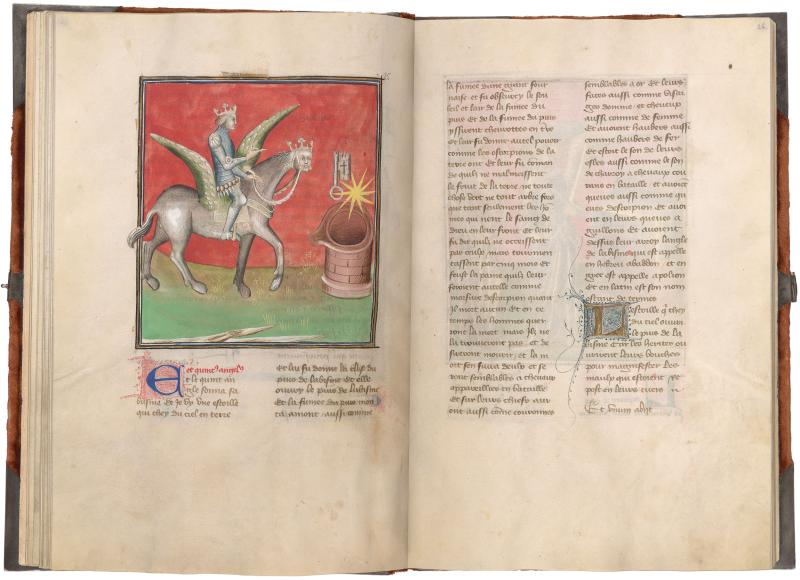 Et le quint angle
et le quint an
gle sonna sa
busine Et Je vy une estoille
qui chey du ciel en terre
et lui fu donne la clef du
puis de labisme Et elle
ouvry le puis de labisme
Et la fumee du puis mon
ta amont aussi comme
26
la fumee dune grant four
naise et fu obscurcy le so
leil et lair de la fumee du
puis Et de la fumee du puis
yssirent en tre
et leur fu donne autel pouoir
comme les escorpions de la
terre ont Et leur fu coman
de quilz ne malmeissent
le fruit de la terre ne toute
chose vert ne tout arbre fors
que tant seulement les ho
mes qui nont le sang de
dieu en leur front Et leur
fu dit quilz ne occeissent
pas tourmen
tassent par cinq mois et
feust la paine quilz leur
feroient autelle comme
morsure descorpion quant
il mort aucun Et en ce
temps les hommes quer
ront la mort mais ilz ne
la trouveront pas et de
sireront mourir et la m
ort sen fuira deulx et se
ront semblables a chevaux
appareilliez en bataille
Et sur leurs chiefs aur
ont aussi come couronnes
semblables a or Et leurs
faces aussi comme visai
ges domme et cheveux
aussi comme de femme
Et avoient haubers aussi
comme haubers de fer
Et estoit le son de leurs
esles aussi comme le son
de charroy a chevaux cou
rans en bataille et avoient
queues aussi comme qu
eues descorpion Et avoi
ent en leurs queues a
guillons Et avoient
dessus leur a roy langle
de labisme qui est appelle
en hebrieu abaddon et en
grec est appelle apolion
et en latin est son nom
estant de termes
Lestoille qui chey
du ciel ouvri
le puis de la
bisme Car les herites ou
uvrirent leurs bouches
pour magnifester les
maulx qui estoient re
post en leurs cuers
Et unum abiit